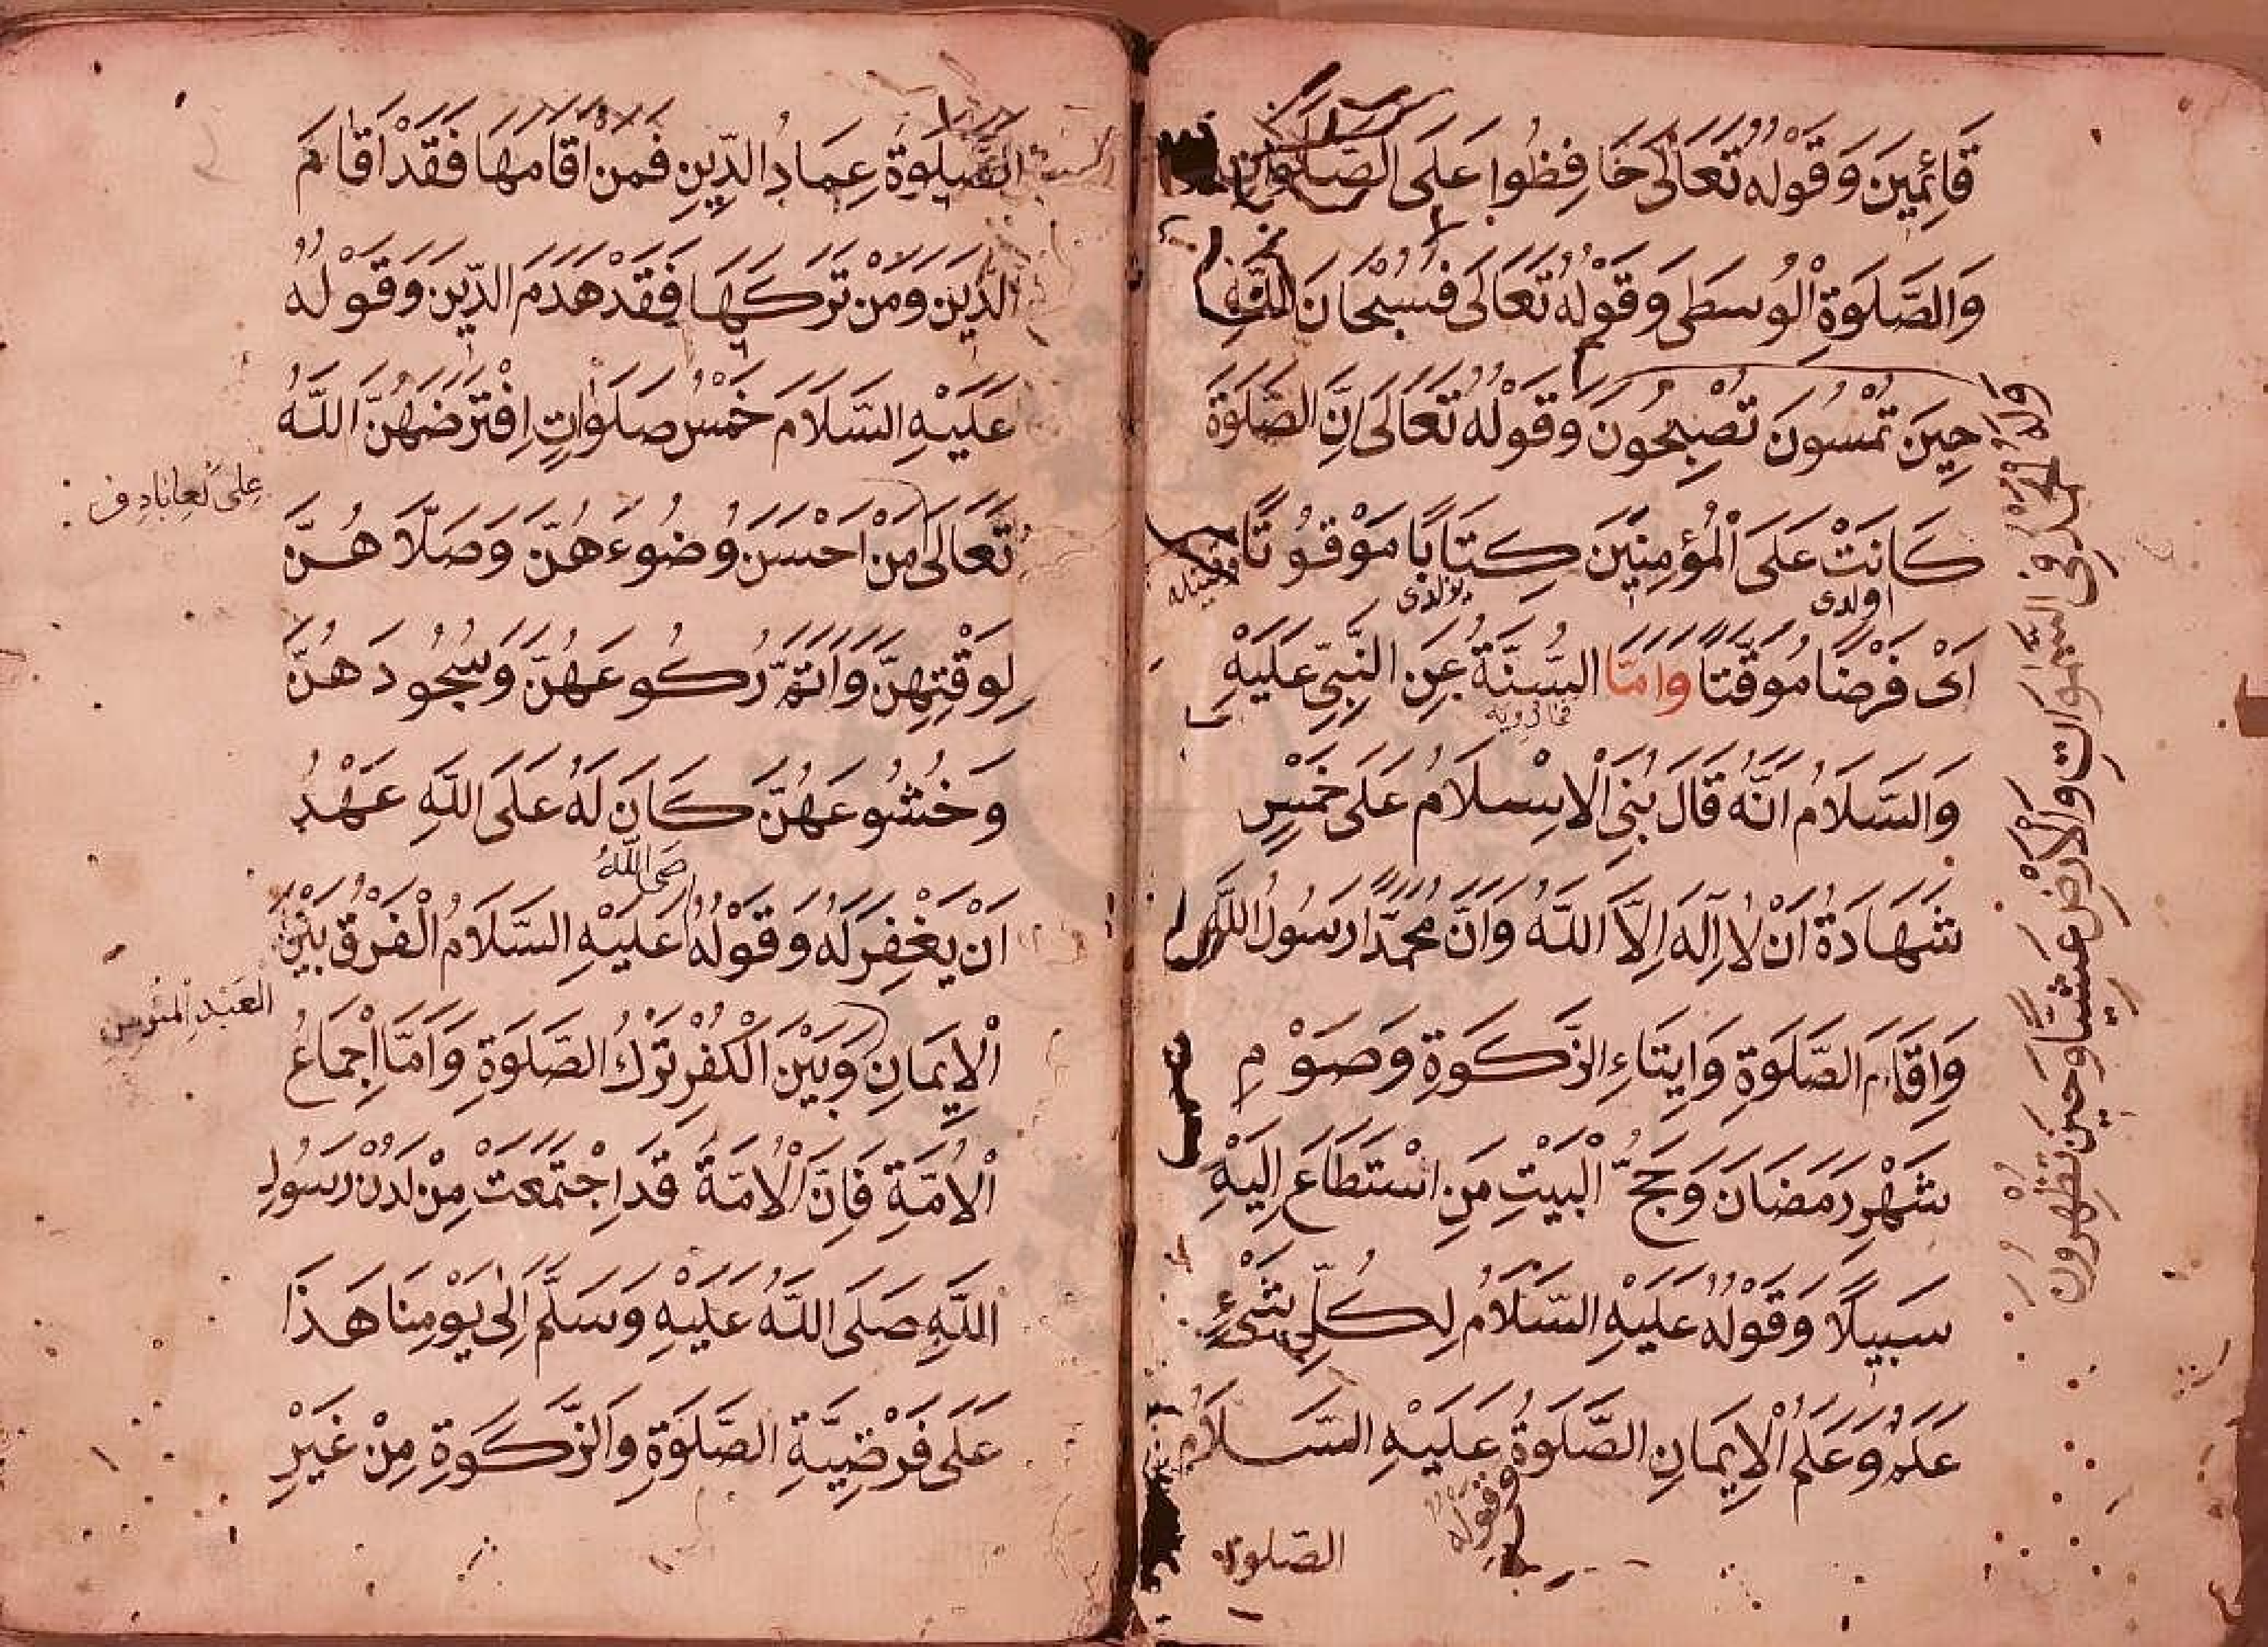 قَائِمِينَ وَقَوْلُهُ تَعَالَى حَافِظُوا عَلَى الصَّلَوَاتِ
وَالصَّلَوةِ الْوُسْطَى وَقَوْلُهُ تَعَالَى فَسُبْحَانَ اللَّهِ
حِينَ تُمْسُونَ تُصْبِحُونَ وَقَوْلُهُ تَعَالَى اِنَّ الصَّلَوةَ
كَانَتْ عَلَى الْمُؤْمِنِينَ كِتَابًا مَوْقُوتًا
اولدى
اَىْ فَرْضًا مُوَقَّتًا وَامَّا السُّنَّةُ عَنِ النَّبِىِّ عَلَيْهِ
وَالسَّلَامُ اَنَّهُ قَالَ بُنِىَ الْاِسْلَامُ عَلَى خَمْسٍ
شَهَادَةُ اَنْ لَا اِلَهَ اِلَّا اللَّهُ وَاَنَّ مُحَمَّدًا رَسُولُ اللَّهِ
وَاِقَامِ الصَّلَوةِ وَاِيتَاءِ الزَّكَوةِ وَصَوْمِ
شَهْرِ رَمَضَانَ وَحَجُّ الْبَيْتِ مَنِ اسْتَطَاعَ اِلَيْهِ
سَبِيلًا وَقَوْلُهُ عَلَيْهِ السَّلَامُ لِكُلِّ شَىْءٍ
عَلَمٌ وَعَلَمُ الْاِيمَانِ الصَّلَوةُ عَلَيْهِ السَّلَامُ
وقوله
الصّلوة
وَلَهُ الْحَمْدُ فِى السَّمَوَاتِ وَالْاَرْضِ وَعَشِيًّا وَحِينَ تُظْهِرُونَ
الصَّلَوةُ عِمَادُ الدِّينِ فَمَنْ اَقَامَهَا فَقَدْ اَقَامَ
الدِّينَ وَمَنْ تَرَكَهَا فَقَدْ هَدَمَ الدِّينَ وَقَوْلُهُ
عَلَيْهِ السَّلَامَ خَمْسُ صَلَوَاتٍ اِفْتَرَضَهُنَّ اللَّهُ
تَعَالَى مَنْ اَحْسَنَ وُضُوءَهُنَّ وَصَلَّاهُنَّ
لِوَقْتِهِنَّ وَاَتَمَّ رُكُوعَهُنَّ وَسُجُودَهُنَّ
وَخُشُوعَهُنَّ كَانَ لَهُ عَلَى اللَّهِ عَهْدٌ
صَلَّى اللَّهُ
اَنْ يَغْفِرَ لَهُ وَقَوْلُهُ عَلَيْهِ السَّلَامُ الْفَرْقُ بَيْنَ
العَبْدِ الْمُؤْمِنِ
الْاِيمَانِ وَبَيْنَ الْكُفْرِ تَرْكُ الصَّلَوةِ وَاَمَّا اِجْمَاعُ
الْاُمَّةِ فَاِنَّ الْاُمَّةَ قَدِ اجْتَمَعَتْ مِنْ لَدُنْ رَسُولِ
اللَّهِ صَلَى اللَّهُ عَلَيْهِ وَسَلَّمَ اِلَى يَوْمِنَا هَذَا
عَلَى فَرْضِيَّةِ الصَّلَوةِ وَالزَّكَوةِ مِنْ غَيْرِ